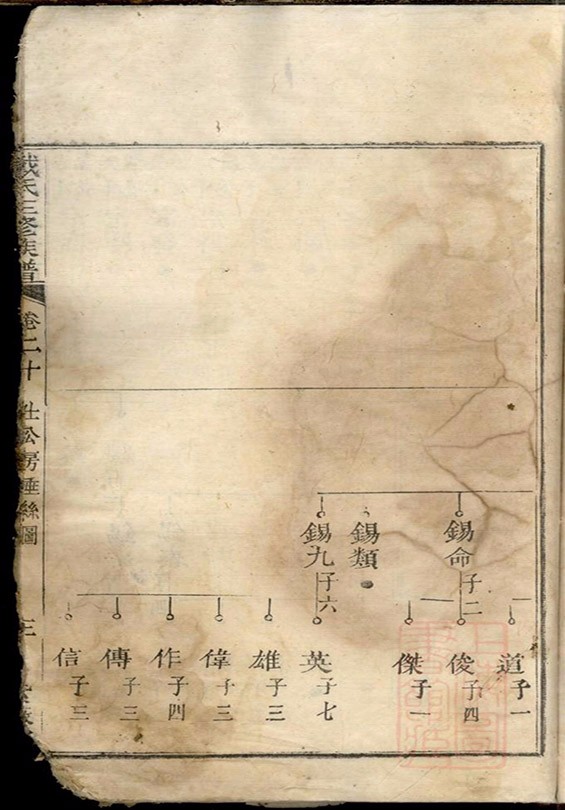 錫命 子二
錫類
錫九 子六
道 子一
俊 子四
傑 子一
英 子七
雄 子三
偉 子三
作 子四
傳 子三
信 子三
戴氏三修族譜
卷二十
仕公房垂絲圖
三